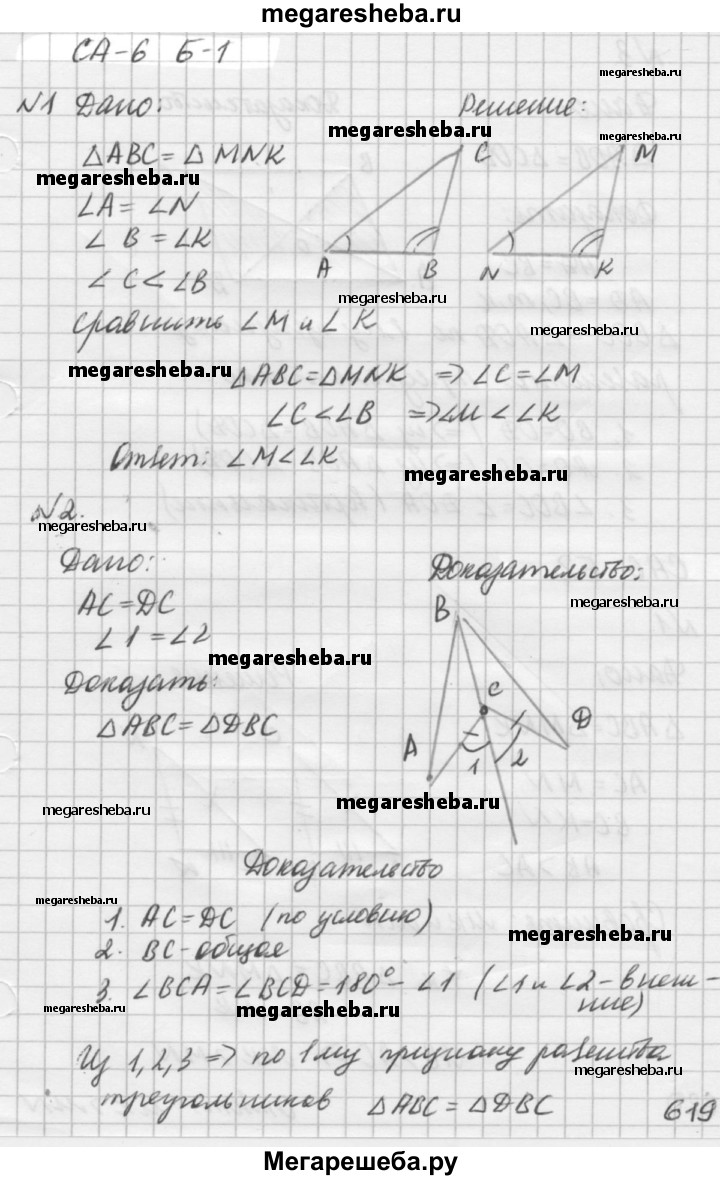 megaresheba.ru
СА-6 Б-1
megaresheba.ru
№1 Дано:
Решение:
megaresheba.ru
megaresheba.ru
△ABC = △MNK
C
M
megaresheba.ru
∠A = ∠N
∠B = ∠K
A
B
N
K
∠C < ∠B
megaresheba.ru
Сравнить ∠M и ∠K
megaresheba.ru
megaresheba.ru
△ABC = △MNK ⇒ ∠C = ∠M
∠C < ∠B ⇒ ∠M < ∠K
Ответ: ∠M < ∠K
megaresheba.ru
№2.
megaresheba.ru
Дано:
Доказательство:
AC = DC
megaresheba.ru
B
∠1 = ∠2
megaresheba.ru
Доказать:
C
△ABC = △DBC
D
A
1
2
megaresheba.ru
megaresheba.ru
Доказательство
megaresheba.ru
1. AC = DC (по условию)
megaresheba.ru
2. BC - общая
3. ∠BCA = ∠BCD = 180° - ∠1 (∠1 и ∠2 - внеш-
ние)
megaresheba.ru
Из 1, 2, 3 ⇒ по 1му признаку равенства
megaresheba.ru
треугольников △ABC = △DBC
619
Мегарешеба.ру